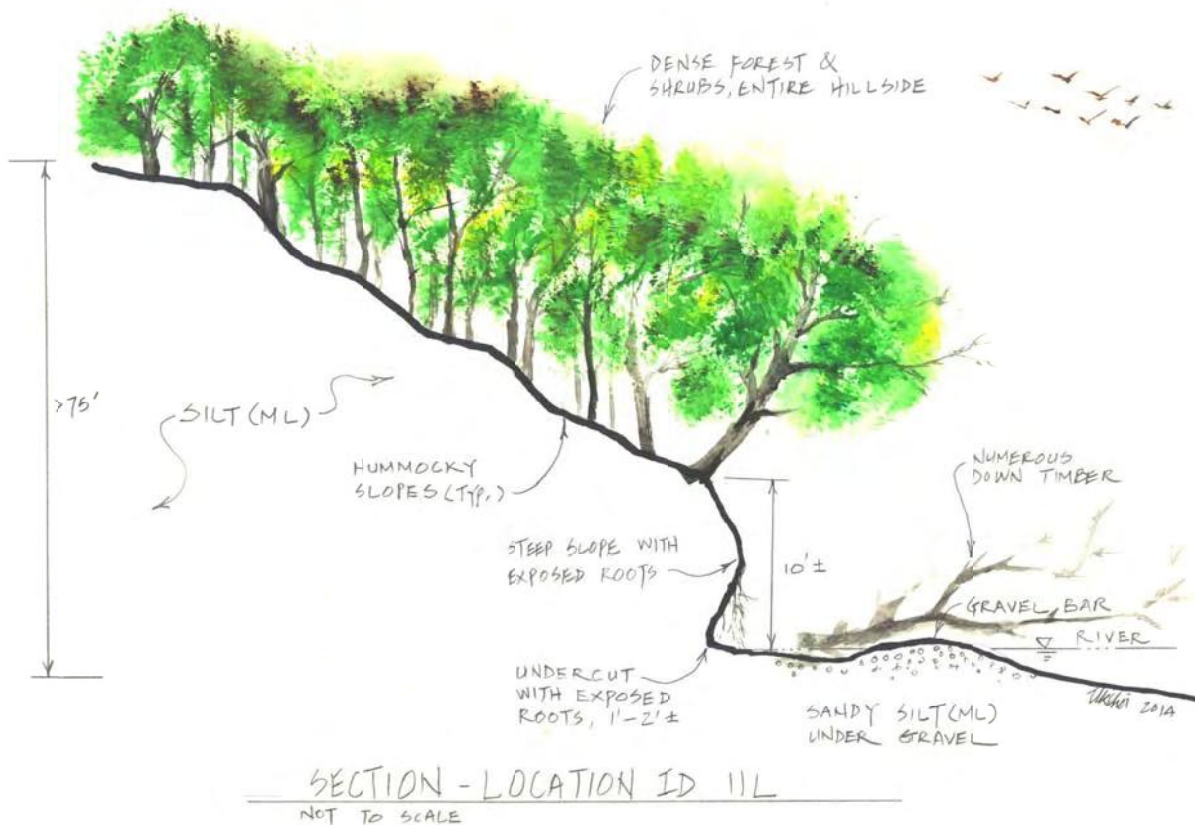 DENSE FOREST &
SHRUBS, ENTIRE HILLSIDE
>75'
SILT (ML)
HUMMOCKY
SLOPES (TYP.)
NUMEROUS
DOWN TIMBER
STEEP SLOPE WITH
EXPOSED ROOTS
10' ±
GRAVEL BAR
RIVER
UNDERCUT
WITH EXPOSED
ROOTS, 1'-2' ±
SANDY SILT (ML)
UNDER GRAVEL
2014
SECTION - LOCATION ID 11L
NOT TO SCALE